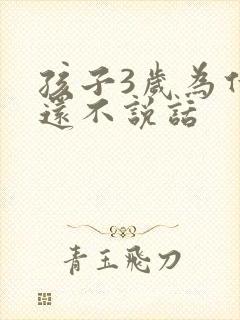 孩子3歲為什
還不說話
青玉飛刀